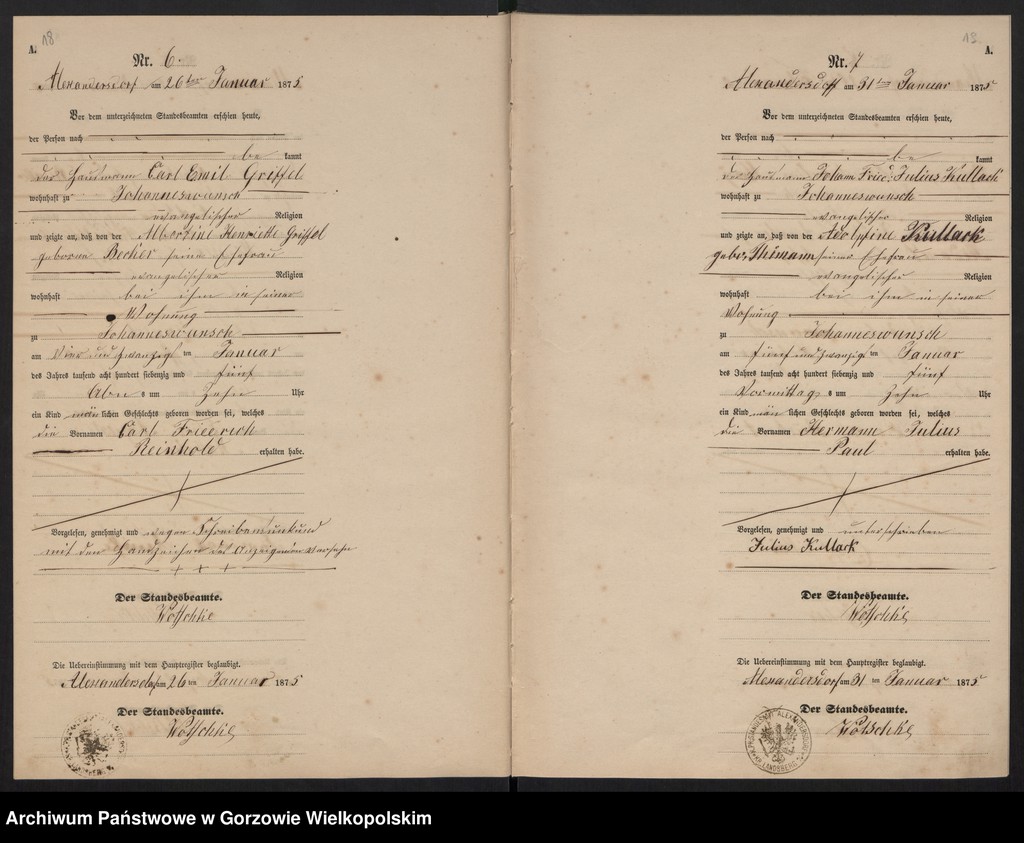 18
A.
Nr. 6.
Alexandersdorf am 26ten Januar 1875
Vor dem unterzeichneten Standesbeamten erschien heute,
der Person nach
be kannt
der Hausmann Carl Emil Griffel
wohnhaft zu Johanneswunsch
evangelischer Religion
und zeigte an, daß von der Albertine Henriette Griffel
geborene Becher seine Ehefrau
evangelischer Religion
wohnhaft bei ihm in seiner
Wohnung
zu Johanneswunsch
am vier und zwanzig ten Januar
des Jahres tausend acht hundert siebenzig und fünf
Abn s um zehn Uhr
ein Kind män lichen Geschlechts geboren worden sei, welches
die Vornamen Carl Friedrich
Reinhold erhalten habe.
Vorgelesen, genehmigt und wegen Schreibensunkund
mit den Handzeichen des Anzeigenden versehn
+ + +
Der Standesbeamte.
Wotschke
Die Uebereinstimmung mit dem Hauptregister beglaubigt.
Alexandersdorf am 26 ten Januar 1875
Der Standesbeamte.
Wotschke
19
A.
Nr. 7
Alexandersdorff am 31ten Januar 1875
Vor dem unterzeichneten Standesbeamten erschien heute,
der Person nach
be kannt
der Hausmann Johann Fried. Julius Kullack
wohnhaft zu Johanneswunsch
evangelischer Religion
und zeigte an, daß von der Adolphine Kullack
gebor. Thimann seiner Ehefrau
evangelischer Religion
wohnhaft bei ihm in seiner
Wohnung
zu Johanneswunsch
am fünf und zwanzig ten Januar
des Jahres tausend acht hundert siebenzig und fünf
Vormittag s um zehn Uhr
ein Kind män lichen Geschlechts geboren worden sei, welches
die Vornamen Hermann Julius
Paul erhalten habe.
Vorgelesen, genehmigt und unterschrieben
Julius Kullack
Der Standesbeamte.
Wotschke
Die Uebereinstimmung mit dem Hauptregister beglaubigt.
Alexandersdorf am 31 ten Januar 1875
Der Standesbeamte.
Wotschke
LANDSBERG
Archiwum Państwowe w Gorzowie Wielkopolskim